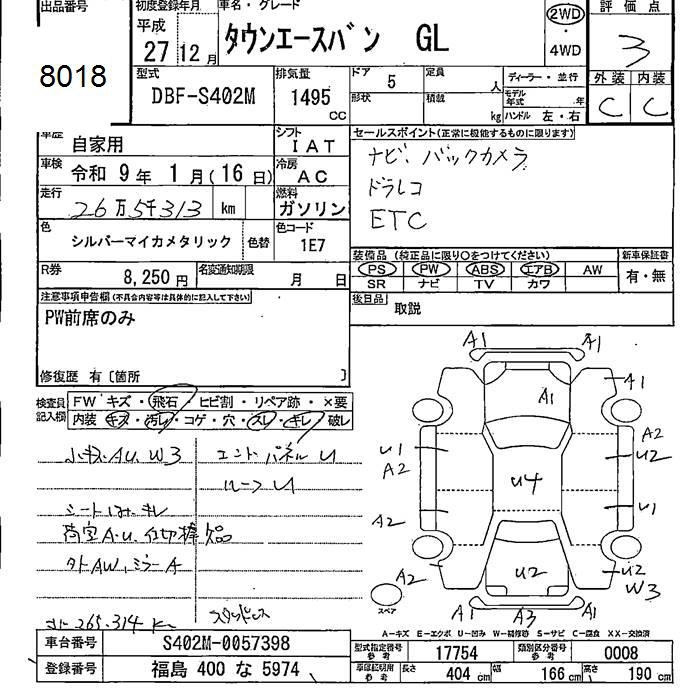 出品番号 初度登録年月 車名・グレード 2WD 評価点
平成 タウンエースバン GL ・ 3
27 12月 4WD
8018
型式 排気量 ドア 5 定員 人 ディーラー・並行 外装 内装
DBF-S402M 1495 CC 形状 積載 kg モデル年式 年 C C
ハンドル 左・右
車歴 自家用 シフト IAT セールスポイント(正常に機能するものに限ります)
車検 令和 9年 1月(16日) 冷房 AC ナビ、バックカメラ
走行 26万5千313 km 燃料 ガソリン ドラレコ
ETC
色 シルバーマイカメタリック 色替 色コード 1E7
装備品(純正品に限り○をつけてください) 新車保証書
R券 8,250円 名変通知期限 月 日 PS PW ABS エアB AW 有・無
SR ナビ TV カワ
注意事項申告欄(不具合内容等は具体的に記入して下さい) 後日品 取説
PW前席のみ
修復歴 有〔箇所 〕
検査員記入欄 FW キズ・飛石・ヒビ割・リペア跡・×要
内装 キズ・汚レ・コゲ・穴・スレ・キレ・破レ
小キズ、A U、W3 エンドパネルU
ルーフU
シート キレ
荷室A.U、仕切棒欠品
外AW、ミラーA
265,314 km
A1 A1
A1 A1
U1 A2
A2 U2
U4 U1
A2
U2 U2
A2 W3
スペア A1 A3 A1
A-キズ E-エクボ U-凹み W-補修跡 S-サビ C-腐食 XX-交換済
車台番号 S402M-0057398 型式指定番号 参考 17754 類別区分番号 参考 0008
登録番号 福島 400 な 5974 車庫証明用 参考 長さ 404 cm 幅 166 cm 高さ 190 cm